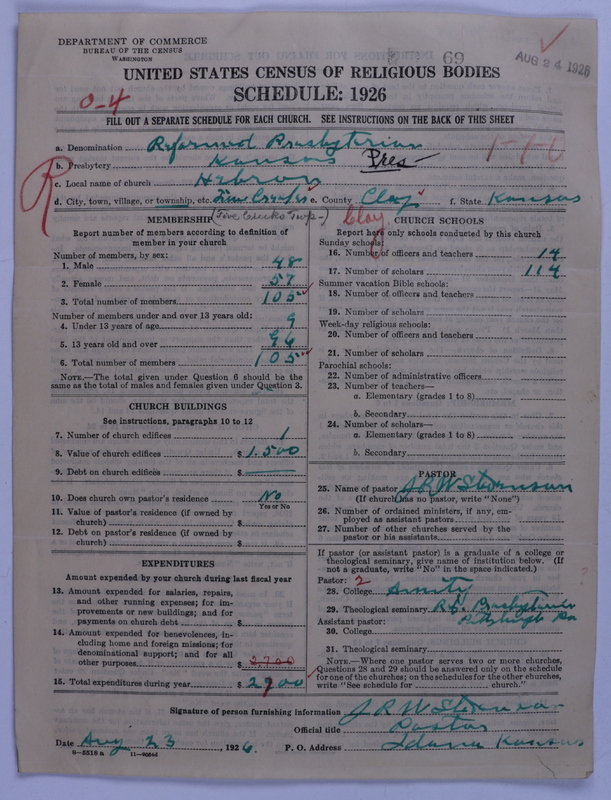 DEPARTMENT OF COMMERCE
BUREAU OF THE CENSUS
WASHINGTON
69
AUG 24 1926
UNITED STATES CENSUS OF RELIGIOUS BODIES
SCHEDULE: 1926
0-4
FILL OUT A SEPARATE SCHEDULE FOR EACH CHURCH. SEE INSTRUCTIONS ON THE BACK OF THIS SHEET
a. Denomination Reformed Presbyterian
b. Presbytery Kansas Pres—
c. Local name of church Hebron
d. City, town, village, or township, etc. Five Creeks e. County Clay f. State Kansas
R
(Five Creeks Twp-) Clay
MEMBERSHIP
Report number of members according to definition of member in your church
Number of members, by sex:
1. Male 48
2. Female 57
3. Total number of members 105
Number of members under and over 13 years old:
4. Under 13 years of age 9
5. 13 years old and over 96
6. Total number of members 105
NOTE.—The total given under Question 6 should be the
same as the total of males and females given under Question 3.
CHURCH BUILDINGS
See instructions, paragraphs 10 to 12
7. Number of church edifices 1
8. Value of church edifices $ 1,500
9. Debt on church edifices $
10. Does church own pastor's residence No
Yes or No
11. Value of pastor's residence (if owned by
church) $
12. Debt on pastor's residence (if owned by
church) $
EXPENDITURES
Amount expended by your church during last fiscal year
13. Amount expended for salaries, repairs,
and other running expenses; for im-
provements or new buildings; and for
payments on church debt $
14. Amount expended for benevolences, in-
cluding home and foreign missions; for
denominational support; and for all
other purposes $ 2,700
15. Total expenditures during year $ 2900
CHURCH SCHOOLS
Report here only schools conducted by this church
Sunday schools:
16. Number of officers and teachers 14
17. Number of scholars 114
Summer vacation Bible schools:
18. Number of officers and teachers
19. Number of scholars
Week-day religious schools:
20. Number of officers and teachers
21. Number of scholars
Parochial schools:
22. Number of administrative officers
23. Number of teachers—
a. Elementary (grades 1 to 8)
b. Secondary
24. Number of scholars—
a. Elementary (grades 1 to 8)
b. Secondary
PASTOR
25. Name of pastor J R W Stevenson
(If church has no pastor, write "None")
26. Number of ordained ministers, if any, em-
ployed as assistant pastors
27. Number of other churches served by the
pastor or his assistants
If pastor (or assistant pastor) is a graduate of a college or
theological seminary, give name of institution below. (If
not a graduate, write "No" in the space indicated.)
Pastor: 2
28. College
29. Theological seminary Ref. Presbyterian
Assistant pastor: Pittsburgh Pa
30. College
31. Theological seminary
NOTE.—Where one pastor serves two or more churches,
Questions 28 and 29 should be answered only on the schedule
for one of the churches; on the schedules for the other churches,
write "See schedule for church."
Signature of person furnishing information J R W Stevenson
Official title Pastor
Date Aug 23, 1926. P. O. Address Idana Kansas
8—5518 a